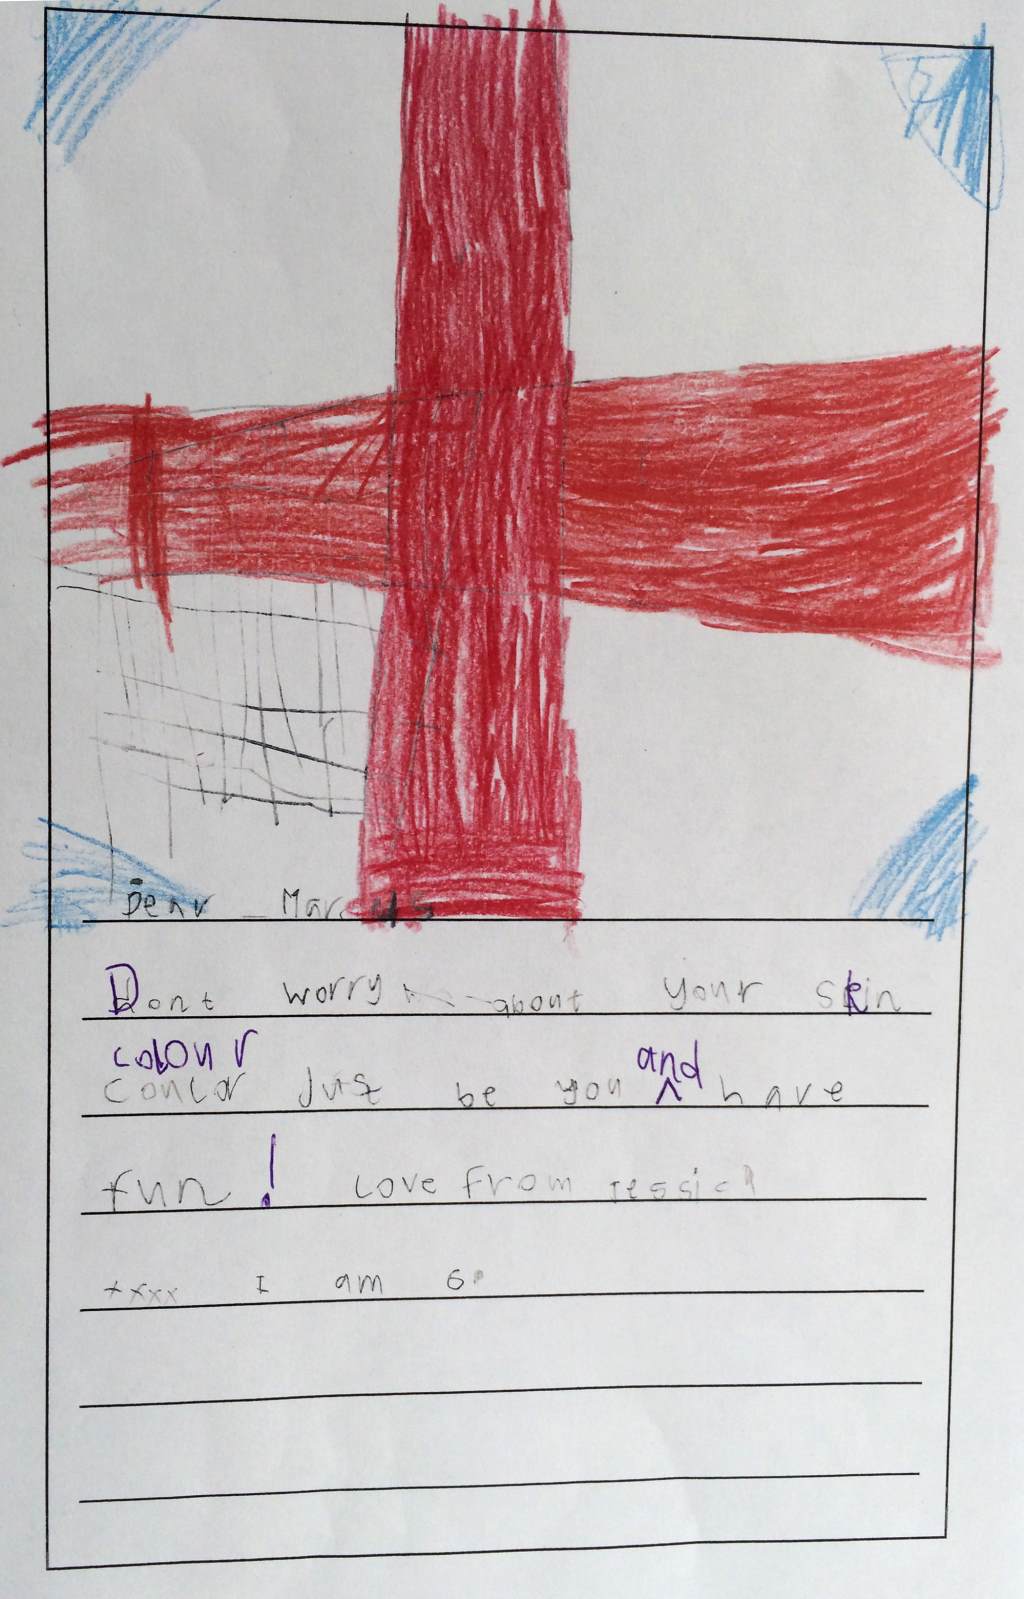 Dear Marcus
Dont worry about your skin
colour and
coulor Just be you ^ have
fun! Love From Jessica
xxxx I am 6